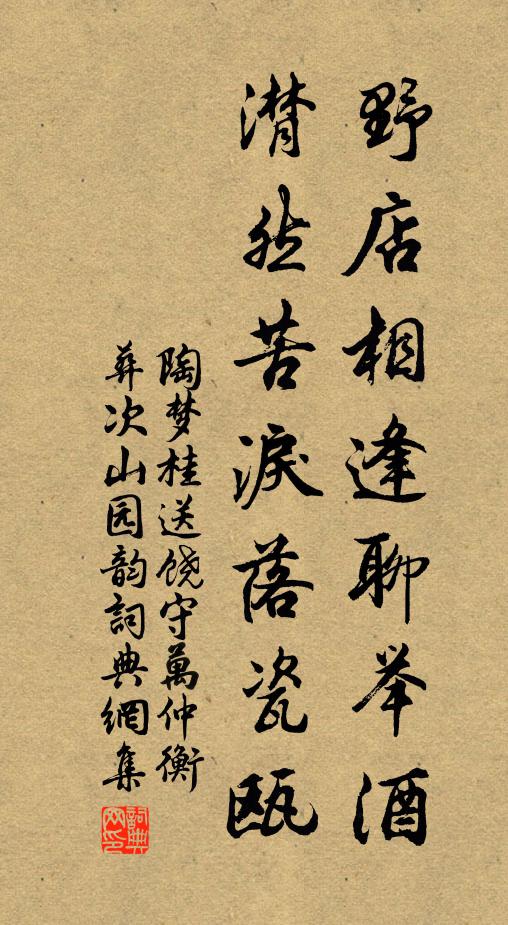 野店相逢聊举酒
潸然苦淚落瓷瓯
陶梦桂送饶守萬仲衡
葬次山园韵詞典網集
詞典网印